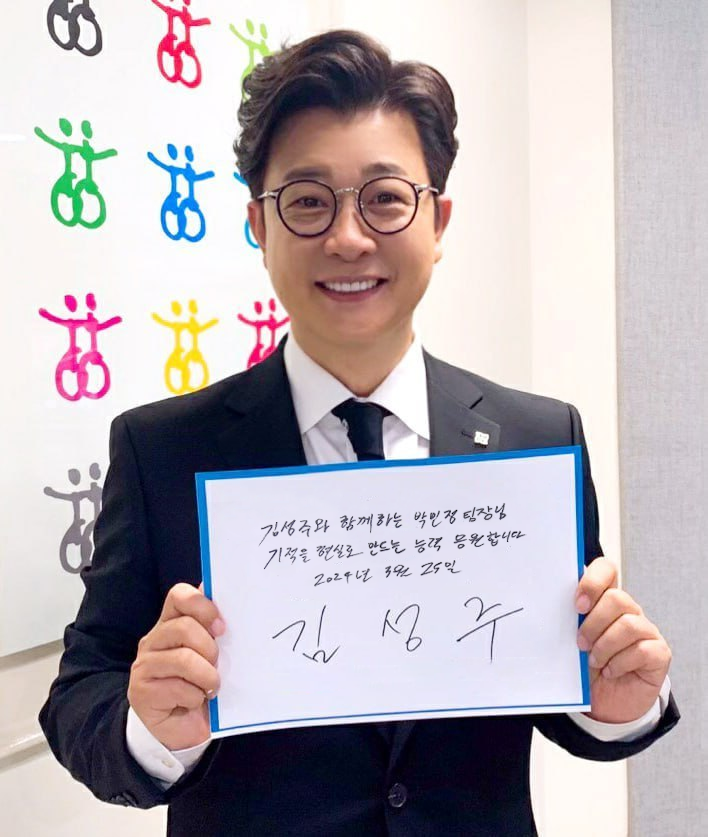 김성주와 함께하는 박민정 팀장님
기적을 현실로 만드는 능력 응원합니다
2024년 3월 25일
김성주